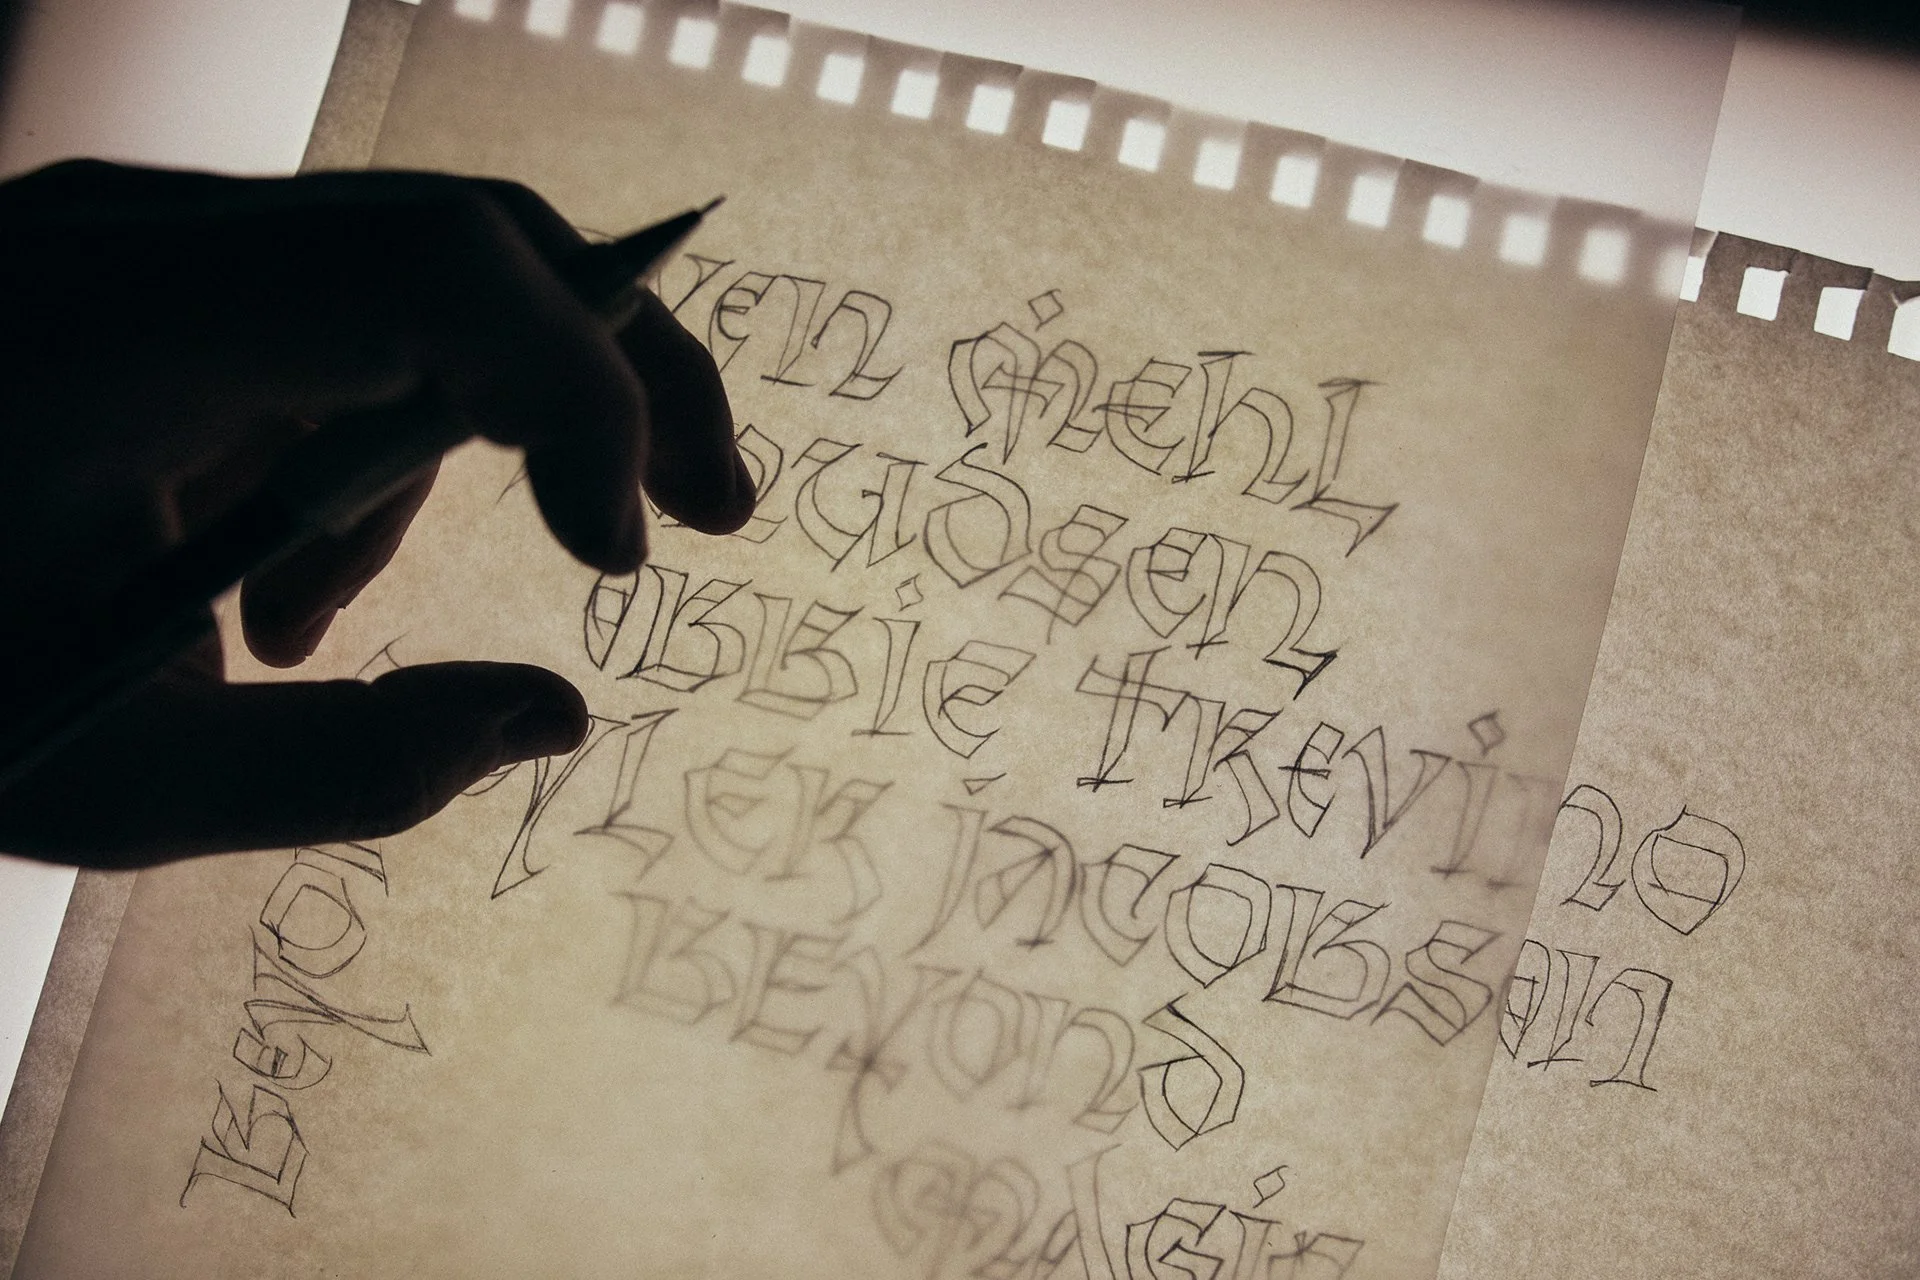 ven Mehl
nudsen
obbie Trevino
yler jacobson
Beyond
Beyon